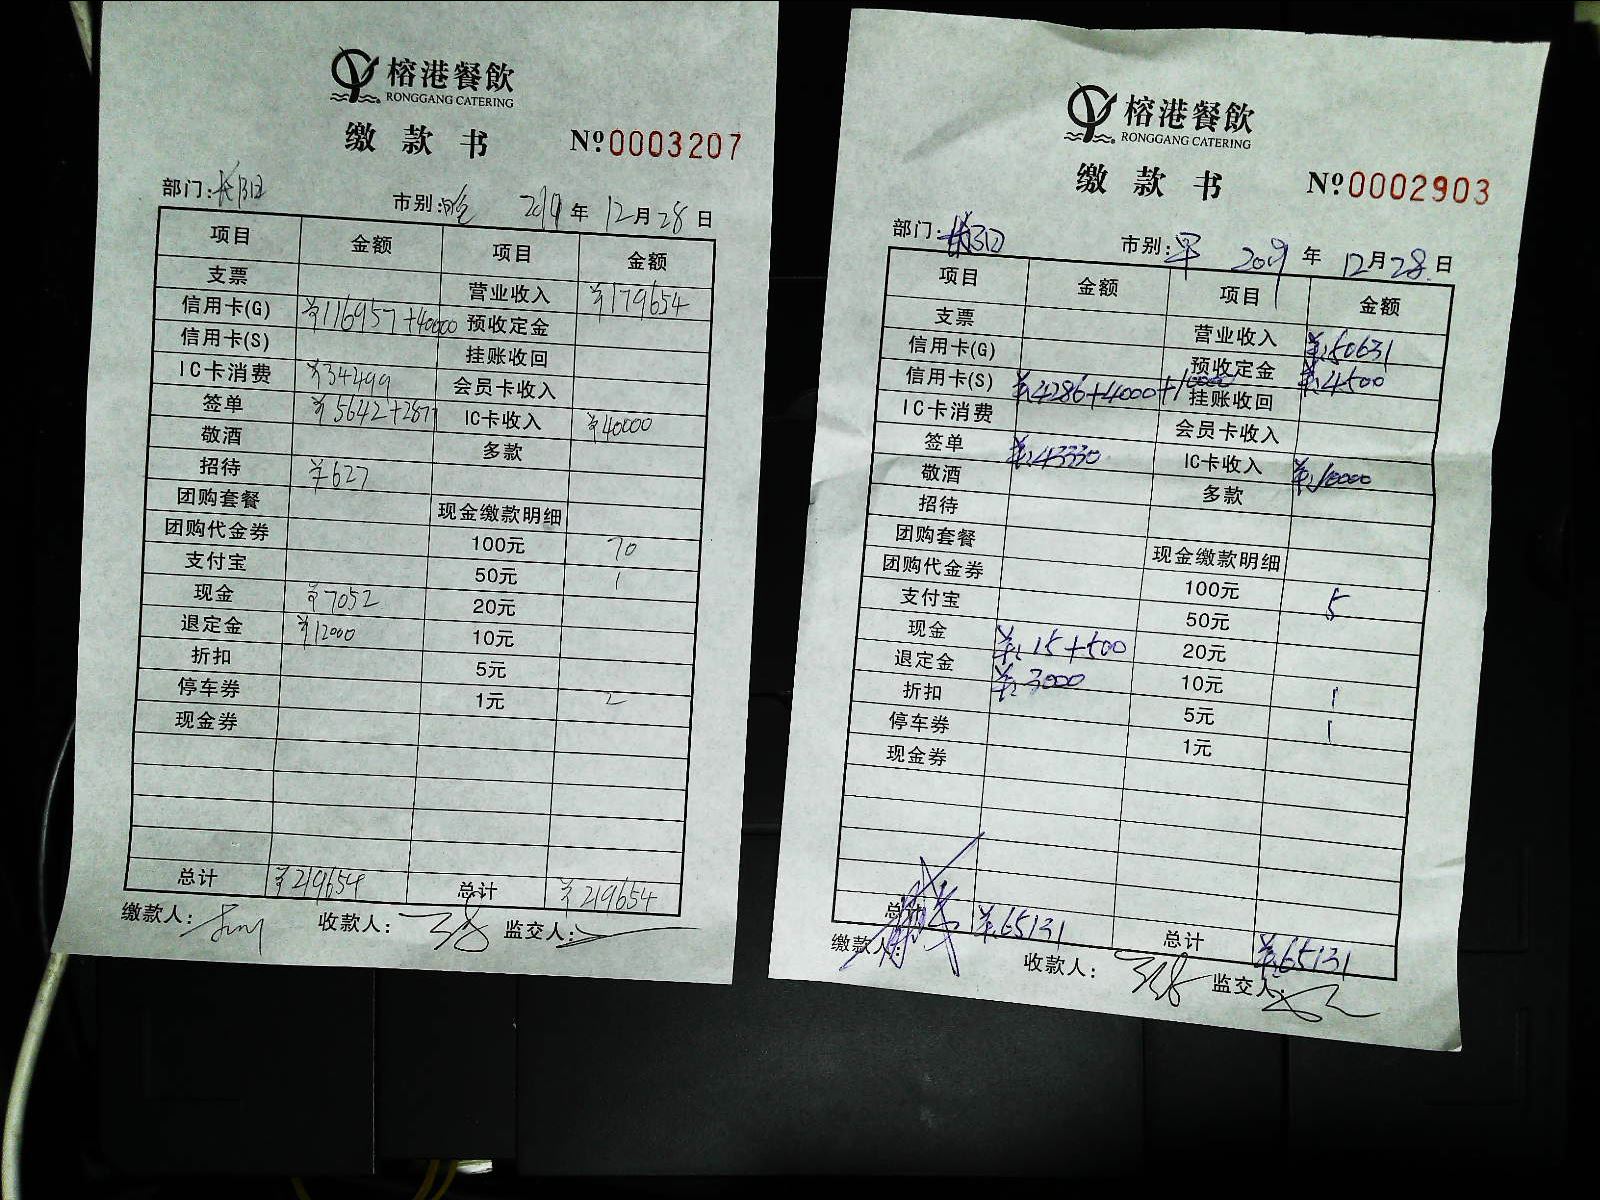 榕港餐飲
RONGGANG CATERING
缴款书 Nº0003207
部门: 市别:晚 2019年12月28日
项目 金额 项目 金额
支票 营业收入 ¥179654
信用卡(G) ¥116957+40000 预收定金
信用卡(S) 挂账收回
IC卡消费 ¥34499 会员卡收入
签单 ¥5642+2877 IC卡收入 ¥40000
敬酒 多款
招待 ¥627
团购套餐 现金缴款明细
团购代金券 100元 70
支付宝 50元 1
现金 ¥7052 20元
退定金 ¥12000 10元
折扣 5元
停车券 1元 2
现金券
总计 ¥219654 总计 ¥219654
缴款人: 收款人: 监交人:
榕港餐飲
RONGGANG CATERING
缴款书 Nº0002903
部门: 市别:早 2019年12月28日
项目 金额 项目 金额
支票 营业收入 ¥:50631
信用卡(G) 预收定金 ¥:4500
信用卡(S) ¥:4286+4000+10000 挂账收回
IC卡消费 会员卡收入
签单 ¥:43330 IC卡收入 ¥:10000
敬酒 多款
招待
团购套餐 现金缴款明细
团购代金券 100元 5
支付宝 50元
现金 ¥:15+500 20元
退定金 ¥:3000 10元 1
折扣 5元 1
停车券 1元
现金券
总计 ¥:65131 总计 ¥:65131
缴款人: 收款人: 监交人: